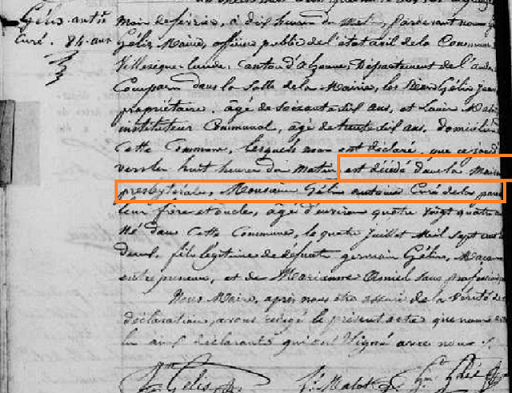 Gélis antne
Curé. 84. ans
mois de février, à dix heures du matin, pardevant nous
Gélis Maire, officier public de l'état civil de la Commune
Villesèque-lande, canton d'Alzonne, Département de l'aude
Comparu dans la Salle de la Mairie, les Sieurs Gélis Jean
propriétaire, âgé de soixante dix ans, et Louis Malot
instituteur Communal, âgé de trente dix ans, domiciliés
Cette Commune, lesquels nous ont déclaré, que ce jourd'
vers les huit heures du Matin est décédé dans la Maison
presbytérale, Monsieur Gélis antoine Curé de la paroi
leur frère et oncle, âgé d'environ quatre vingt quatre a
Né dans Cette Commune, le quatre Juillet Mil Sept cent
deux, fils légitime de défunts germain Gélis, Maçon
entrepreneur, et de Marianne sans profession
Nous Maire, après nous être assuré de la vérité de
déclaration, avons rédigé le présent acte que nous
les déclarants qui ont Signé avec nous.
Gélis Malot Gélis